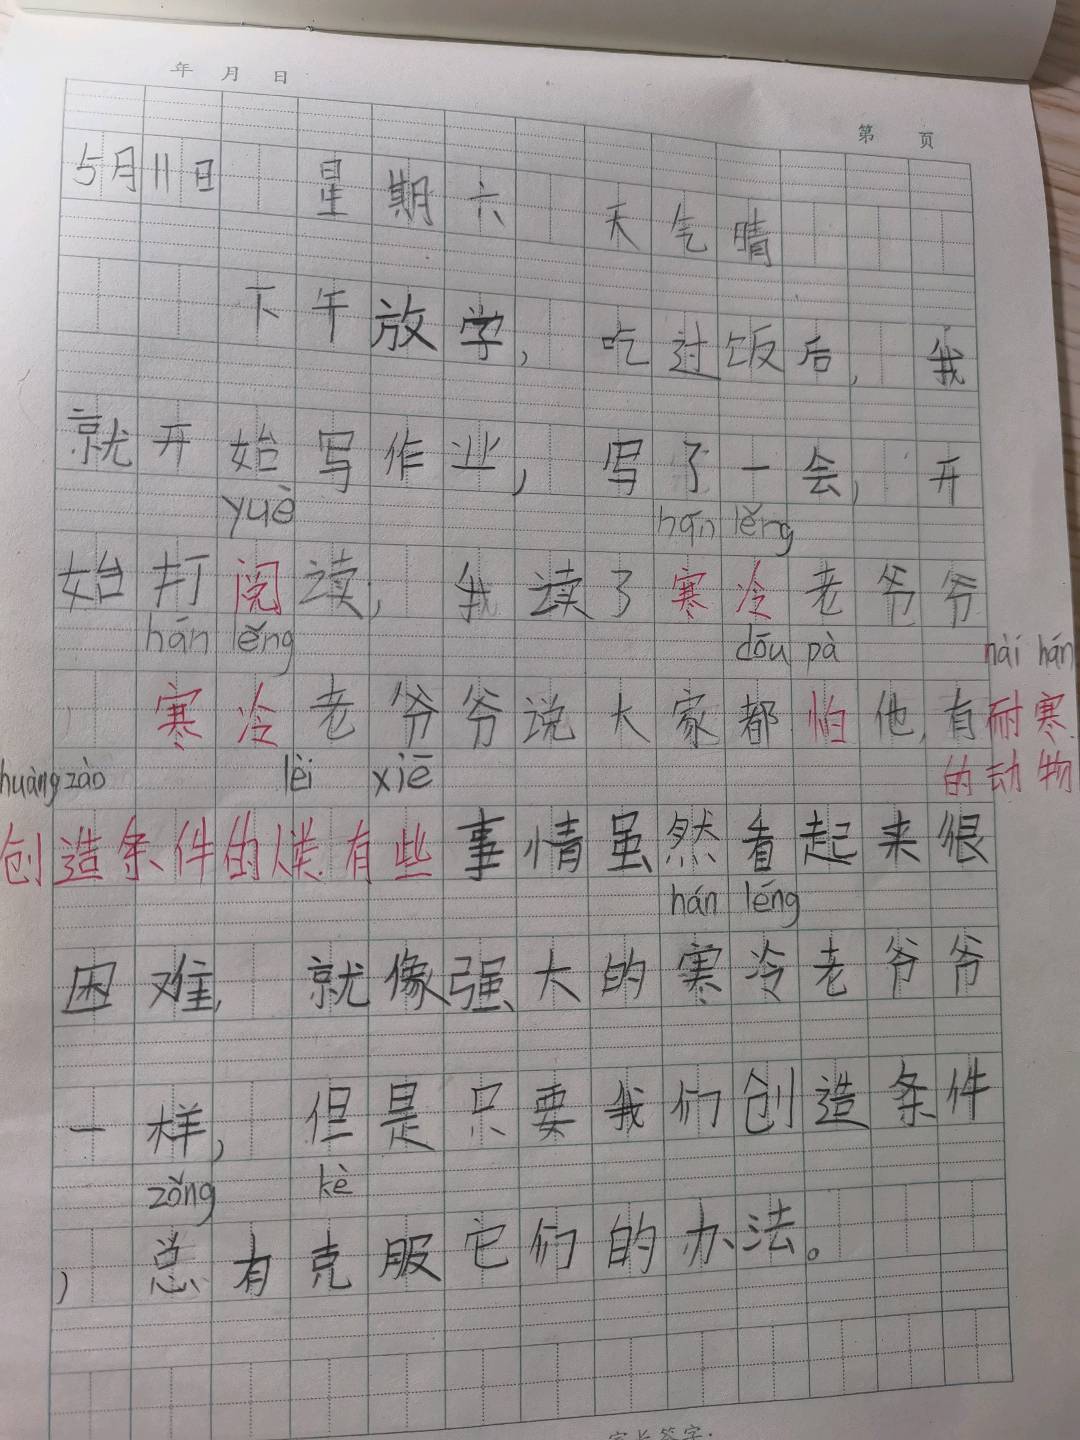 年 月 日
第 页
5月11日 星期六 天气晴
下午放学，吃过饭后，我
就开始写作业，写了一会，开
yuè hán lěng
始打阅读，我读了寒冷老爷爷
hán lěng dōu pà nài hán
寒冷老爷爷说大家都怕他，有耐寒
的动物
huàng zào lèi xiē
创造条件的人类 有些事情虽然看起来很
hán lěng
困难，就像强大的寒冷老爷爷
一样，但是只要我们创造条件
zǒng kè
，总有克服它们的办法。
家长签字：